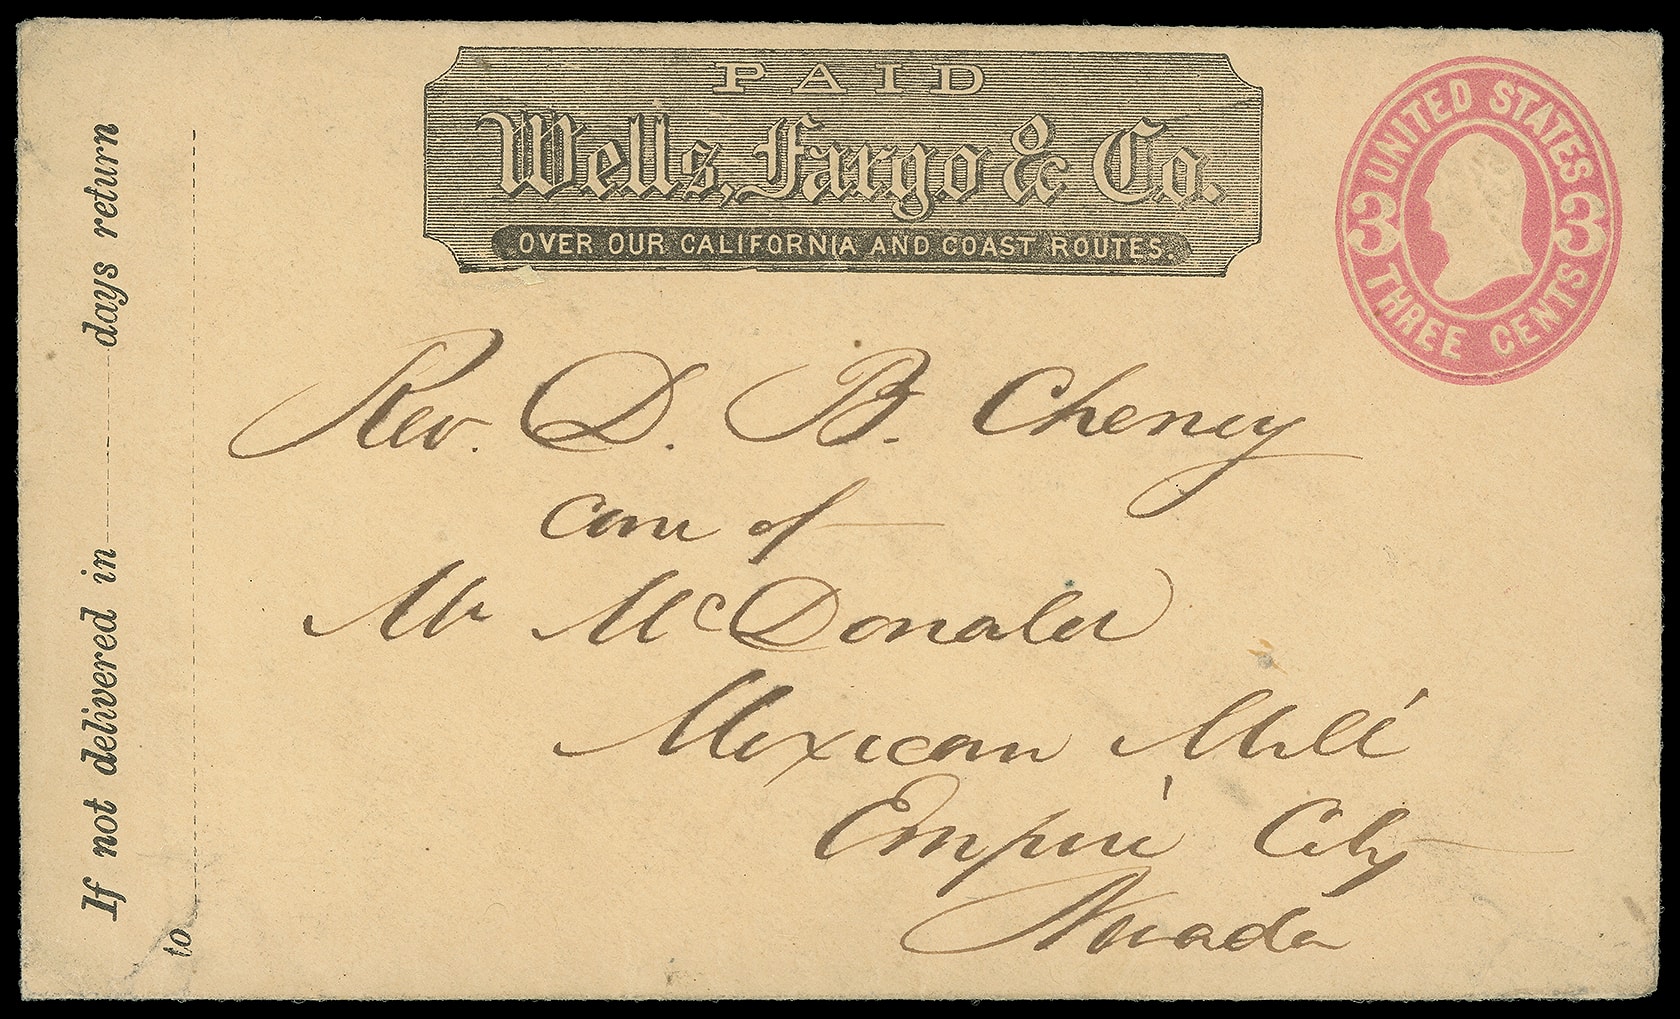 PAID
Wells, Fargo & Co.
OVER OUR CALIFORNIA AND COAST ROUTES.
UNITED STATES
3 3
THREE CENTS
If not delivered in days return
to
Rev. D. B. Cheney
care of
Mr McDonald
Mexican Mill
Empire City
Nevada